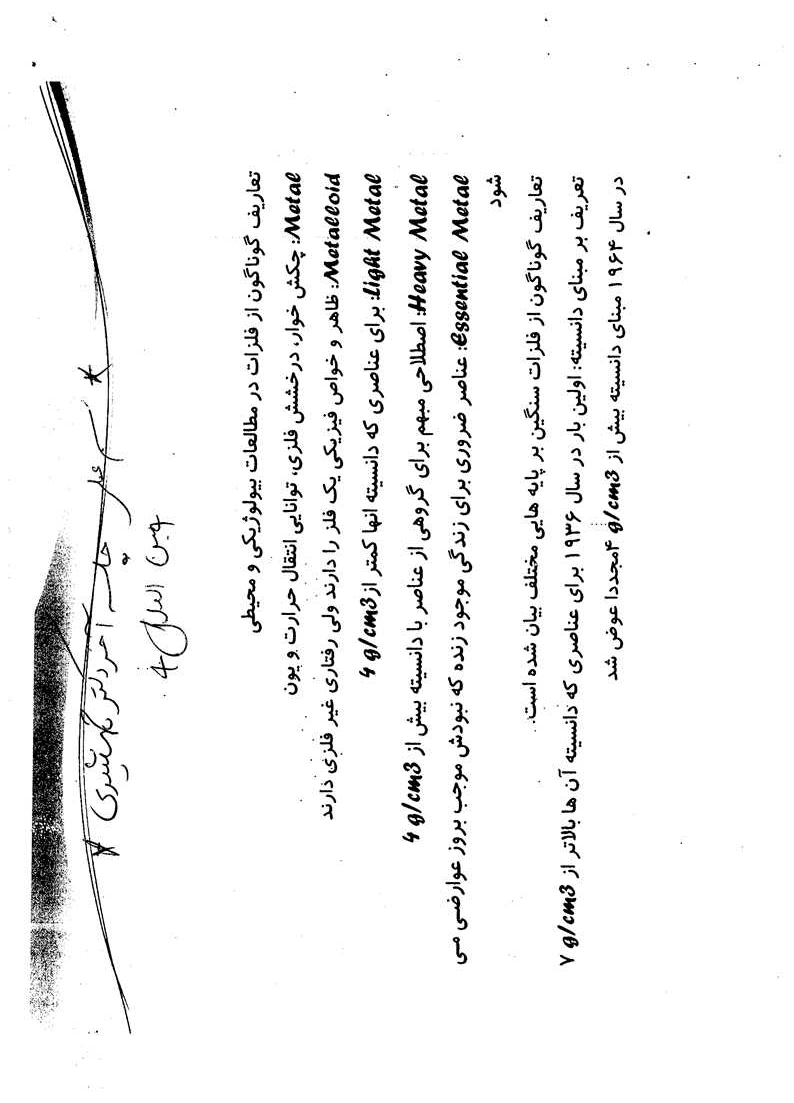 جلسه آخر دکتر
بین الملل 4
تعاریف گوناگون از فلزات در مطالعات بیولوژیکی و محیطی
Metal: چکش خوار، درخشش فلزی، توانایی انتقال حرارت و یون
Metalloid: ظاهر و خواص فیزیکی یک فلز را دارند ولی رفتاری غیر فلزی دارند
Light Metal: برای عناصری که دانسیته انها کمتر از 4 g/cm3
Heavy Metal: اصطلاحی مبهم برای گروهی از عناصر با دانسیته بیش از 4 g/cm3
Essential Metal: عناصر ضروری برای زندگی موجود زنده که نبودش موجب بروز عوارضی می
شود
تعاریف گوناگون از فلزات سنگین بر پایه هایی مختلف بیان شده است.
تعریف بر مبنای دانسیته: اولین بار در سال ۱۹۳۶ برای عناصری که دانسیته آن ها بالاتر از ۷ g/cm3
در سال ۱۹۶۴ مبنای دانسیته بیش از ۴ g/cm3 مجددا عوض شد